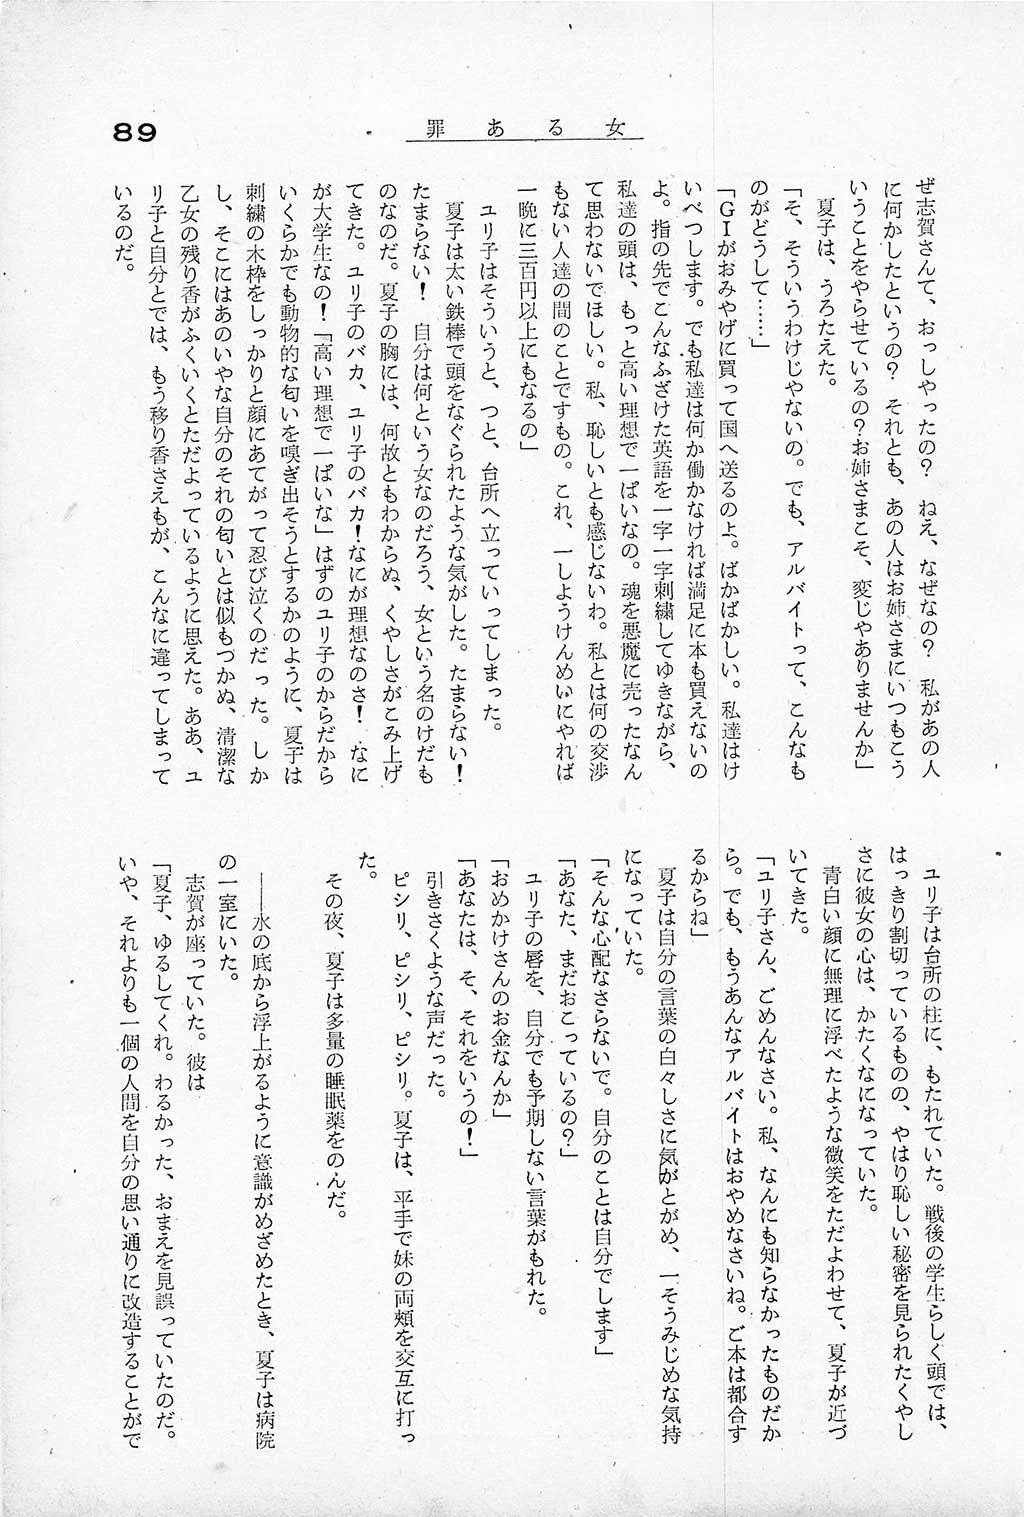 89
罪ある女
ぜ志賀さんて、おっしゃったの？　ねえ、なぜなの？　私があの人
に何かしたというの？　それとも、あの人はお姉さまにいつもこう
いうことをやらせているの？お姉さまこそ、変じやありませんか」
　夏子は、うろたえた。
「そ、そういうわけじゃないの。でも、アルバイトって、こんなも
のがどうして……」
「ＧＩがおみやげに買って国へ送るのよ。ばかばかしい。私達はけ
いべつします。でも私達は何か働かなければ満足に本も買えないの
よ。指の先でこんなふざけた英語を一字一字刺繍してゆきながら、
私達の頭は、もっと高い理想で一ぱいなの。魂を悪魔に売ったなん
て思わないでほしい。私、恥しいとも感じないわ。私とは何の交渉
もない人達の間のことですもの。これ、一しようけんめいにやれば
一晩に三百円以上にもなるの」
　ユリ子はそういうと、つと、台所へ立っていってしまった。
　夏子は太い鉄棒で頭をなぐられたような気がした。たまらない！
たまらない！　自分は何という女なのだろう、女という名のけだも
のなのだ。夏子の胸には、何故ともわからぬ、くやしさがこみ上げ
てきた。ユリ子のバカ、ユリ子のバカ！なにが理想なのさ！　なに
が大学生なの！「高い理想で一ぱいな」はずのユリ子のからだから
いくらかでも動物的な匂いを嗅ぎ出そうとするかのように、夏子は
刺繍の木枠をしっかりと顔にあてがって忍び泣くのだった。しか
し、そこにはあのいやな自分のそれの匂いとは似もつかぬ、清潔な
乙女の残り香がふくいくとただよっているように思えた。ああ、ユ
リ子と自分とでは、もう移り香さえもが、こんなに違ってしまって
いるのだ。
　ユリ子は台所の柱に、もたれていた。戦後の学生らしく頭では、
はっきり割切っているものの、やはり恥しい秘密を見られたくやし
さに彼女の心は、かたくなになっていた。
　青白い顔に無理に浮べたような微笑をただよわせて、夏子が近づ
いてきた。
「ユリ子さん、ごめんなさい。私、なんにも知らなかったものだか
ら。でも、もうあんなアルバイトはおやめなさいね。ご本は都合す
るからね」
　夏子は自分の言葉の白々しさに気がとがめ、一そうみじめな気持
になっていた。
「そんな心配なさらないで。自分のことは自分でします」
「あなた、まだおこっているの？」
　ユリ子の唇を、自分でも予期しない言葉がもれた。
「おめかけさんのお金なんか」
「あなたは、そ、それをいうの！」
　引きさくような声だった。
　ピシリ、ピシリ、ピシリ。夏子は、平手で妹の両頰を交互に打っ
た。
　その夜、夏子は多量の睡眠薬をのんだ。
　――水の底から浮上がるように意識がめざめたとき、夏子は病院
の一室にいた。
　志賀が座っていた。彼は
「夏子、ゆるしてくれ。わるかった、おまえを見誤っていたのだ。
いや、それよりも一個の人間を自分の思い通りに改造することがで